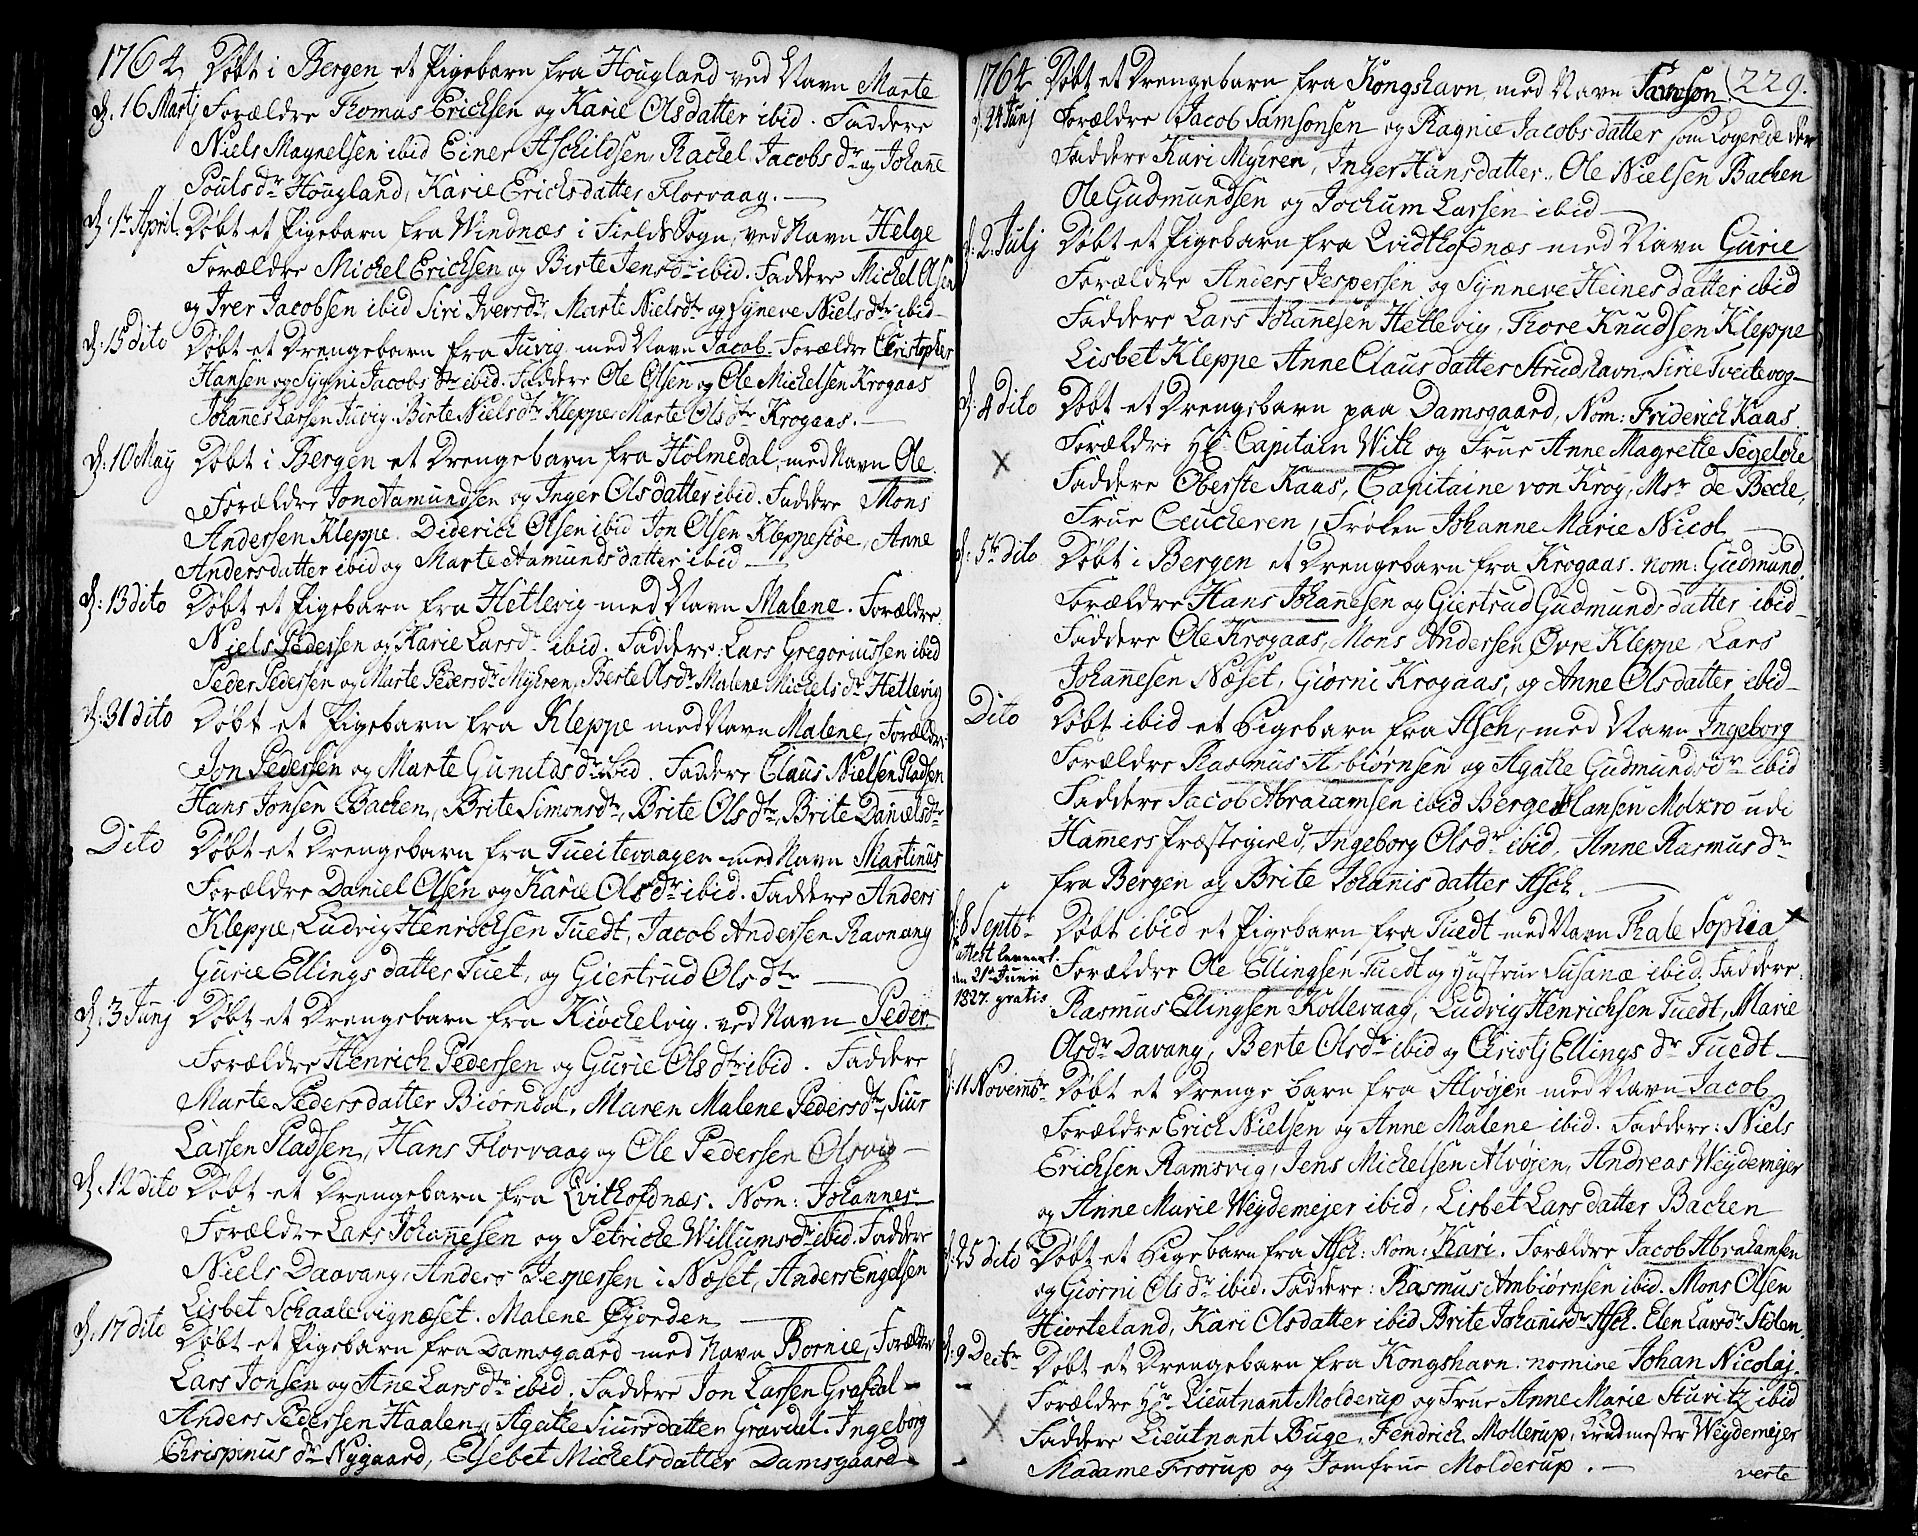 1764, Døbt i Bergen et Pigebarn fra Hougland ved Navn Marte
d. 16 Martj Forældre Thomas Ericksen og Karie Olsdatter ibid. Faddere
Niels Magnelsen ibid Einer Aschildsen, Rachel Jacobs dr og Johane
Pouls dr Hougland, Karie Erichsdatter Florvaag. —
d. 1te April. Døbt et Pigebarn fra Windnæs i Field Sogn, ved Navn Helge
Forældre Michel Ericksen og Birte Jens dr ibid. Faddere Michel Olsen
og Iver Jacobsen ibid Siri Ivers dr, Marte Niels dr og Syneve Niels dr ibid
d. 15 dito Døbt et Drengebarn fra Juvig med Navn Jacob. Forældre Christopher
Hansen og Sygni Jacobs dr ibid. Faddere Ole Olsen og Ole Michelsen Krogaas
Johannes Larsen Juvig. Birte Niels dtr Kleppe Marte Ols dtr Krogaas. —
d. 10 May Døbt i Bergen et Drengebarn fra Holmedal, med Navn Ole.
Forældre Jon Aamundsen og Inger Olsdatter ibid. Faddere Mons
Andersen Kleppe. Diderich Olsen ibid Jon Olsen Kleppestøe, Anne
Andersdatter ibid og Marte Aamundsdatter ibid —
d. 13 dito Døbt et Pigebarn fra Hetlevig med Navn Malene. Forældre
Niels Pedersen og Karie Lars dr ibid. Faddere: Lars Gregoriussen ibid
Peder Pedersen og Marte Peders dr Myhren, Berte Ols dr Malene Michels dr Hetlevig
d. 31 dito Døbt et Pigebarn fra Kleppe med Navn Malene, Forældre
Jon Pedersen og Marte Gunilds dr ibid. Faddere Claus Nielsen Pladsen
Hans Jonsen Bachen, Brite Simons dtr, Brite Ols dtr, Brite Daniels dtr
Dito Døbt et Drengebarn fra Tueitevaagen med Navn Martinus
Forældre Daniel Olsen og Karie Ols dr ibid. Faddere Anders
Kleppe, Ludvig Henrichsen Tuedt, Jacob Andersen Ravnang
Gurie Ellings datter Tuet, og Giertrud Ols dtr —
d. 3 Junj Døbt et Drengebarn fra Kiøchelvig. ved Navn Peder
Forældre Henrich Pedersen og Gurie Ols dtr ibid. Faddere
Marte Pedersdatter Biørndal, Maren Malene Peders dtr, Siur
Larsen Pladsen, Hans Florvaag og Ole Pedersen Olsvig —
d. 12 dito Døbt et Drengebarn fra Qvithofdnæs. Nom: Johannes
Forældre Lars Johannesen og Petricke Willums dr ibid. Faddere
Niels Daavang, Anders Jespersen i Næset, Anders Engelsen
Lisbet Schaalevignæset. Malene Øjorden —
d. 17 dito Døbt et Pigebarn fra Damsgaard med Navn Bornie, Forældre
Lars Jonsen og Ane Lars dtr ibid. Faddere Jon Larsen Grafdal
Anders Pedersen Haalen, Agathe Siursdatter Gravdal. Ingeborg
Chrispinus dr Nygaard, Elsebet Michelsdatter Damsgaard
1764 Døbt et Drengebarn fra Kongshavn med Navn Samson. 229.
d. 24 Junj Forældre Jacob Samsonsen og Ragnie Jacobsdatter som Logerede der
Faddere Kari Myhren, Inger Hansdatter. Ole Nielsen Bachen
Ole Gudmundsen og Jochum Larsen ibid —
d. 2 Julj Døbt et Pigebarn fra Qvidthofdnæs med Navn Gurie
Forældre Anders Jespersen og Synneve Heinesdatter ibid
Faddere Lars Johannesen Hetlevig, Thore Knudsen Kleppe
Lisbet Kleppe Anne Clausdatter Strudshavn, Sirie Tveitevog —
d. 4 dito Døbt et Drengebarn paa Damsgaard, Nom: Friderich Kaas
Forældre Hr. Capitain With og Frue Anne Magrethe Segelche
Faddere Oberste Kaas, Capitaine von Krog, Msr de Beche,
Frue Ceucheren, Frøken Johanne Marie Nicol. —
d. 5te dito Døbt i Bergen et Drengebarn fra Krogaas. nom: Gudmund.
Forældre Hans Johannesen og Giertrud Gudmunds datter ibid
Faddere Ole Krogaas, Mons Andersen Øvre Kleppe, Lars
Johannesen Næset, Giørni Krogaas, og Anne Olsdatter ibid —
Dito Døbt ibid et Pigebarn fra Asch, med Navn Ingeborg
Forældre Rasmus Asbiørnsen og Agathe Gudmunds dr ibid
Faddere Jacob Abrahamsen ibid Berge Hansen Molxro udi
Hamers Præstegield, Ingeborg Ols dr ibid, Anne Rasmus dr
fra Bergen og Brite Johanis datter Asch. —
d. 8 Septb. Døbt ibid et Pigebarn fra Tuedt med Navn Thale Sophia
attest leveret Forældre Ole Ellingsen Tuedt og Hustrue Susanæ ibid. Faddere
den 21de Junii
1827. gratis Rasmus Ellingsen Kollevaag, Ludvig Henrichsen Tuedt, Marie
Ols dr Davang, Berte Ols dr ibid og Christj Ellings dr Tuedt —
d. 11 Novembr Døbt et Drenge barn fra Alvøjen med Navn Jacob
Forældre Erich Nielsen og Anne Malene ibid. Faddere: Niels
Erichsen Ramsvig, Jens Michelsen Alvøjen, Andreas Weydemejer
og Anne Marie Weydemejer ibid, Lisbet Larsdatter Bachen
d. 25 dito Døbt et Pigebarn fra Asch: Nom: Kari. Forældre Jacob Abrahamsen
og Giorni Ols dr ibid. Faddere: Rasmus Ambiørnsen ibid. Mons Olsen
Hiorteland, Kari Olsdatter ibid Brite Johanis dr Asch. Elen Lars dr Stolen
d. 9 Decbr Døbt et Drengebarn fra Kongshavn. nomine Johan Nicolaj.
Forældre Hr. Lieutnant Molderup og Frue Anne Marie Sturitz ibid
Faddere Lieutnant Buge, Fendrich Mollerup, Krudmester Weydemejer
Madame Frorup og Jomfrue Molderup. —
verte